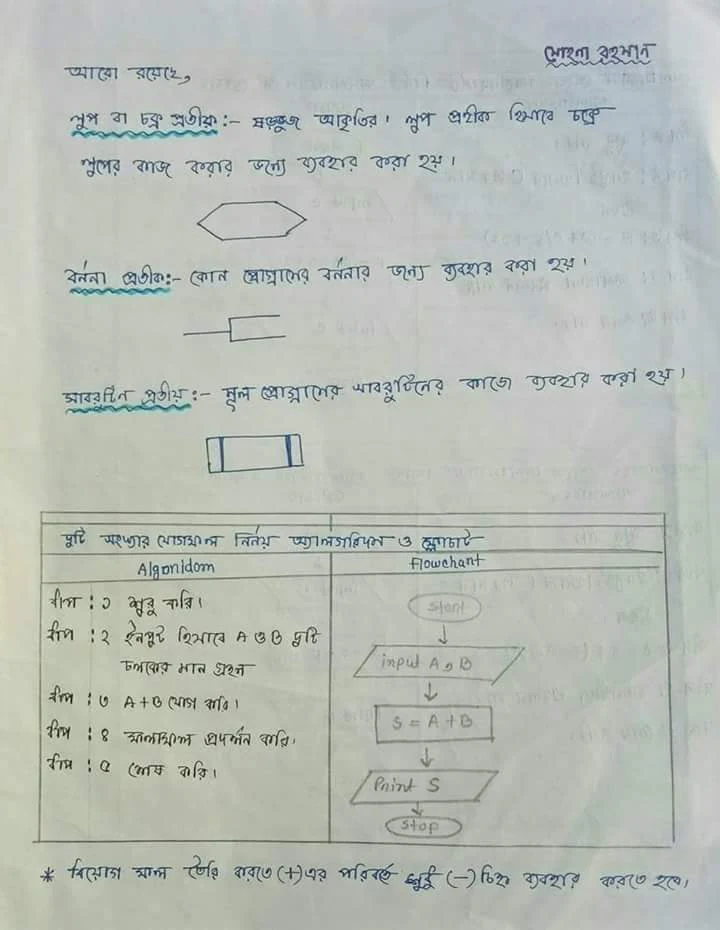 সোহানা রহমান
আরো রয়েছে,
লুপ বা চক্র প্রতীক :- ষড়ভুজ আকৃতির। লুপ প্রতীক হিসাবে চক্রে
লুপের কাজ করার জন্যে ব্যবহার করা হয়।
বর্ননা প্রতীক:- কোন প্রোগ্রামের বর্ননার জন্যে ব্যবহার করা হয়।
সাবরুটিন প্রতীক :- মূল প্রোগ্রামের সাবরুটিনের কাজে ব্যবহার করা হয়।
দুটি সংখ্যার যোগফল নির্নয় অ্যালগরিদম ও ফ্লোচার্ট
Algonidom
Flowchant
স্টাপ : ১ শুরু করি।
স্টাপ : ২ ইনপুট হিসাবে A ও B দুটি
চলকের মান গ্রহন
স্টাপ : ৩ A+B যোগ করি।
স্টাপ : ৪ ফলাফল প্রদর্শন করি।
স্টাপ : ৫ শেষ করি।
stant
input A, B
S = A + B
Print S
stop
* বিয়োগ ফল তৈরি করতে (+) এর পরিবর্তে শুধু (-) চিহ্ন ব্যবহার করতে হবে।